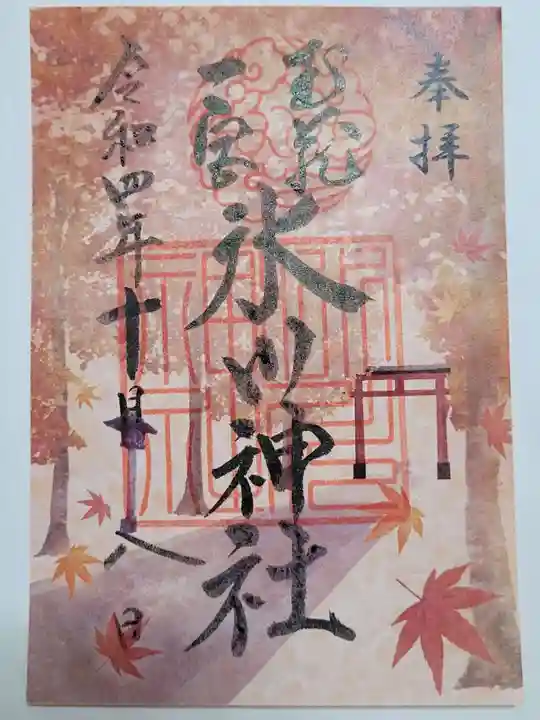 奉拝
武蔵
一宮
氷川神社
令和四年十月廿八日